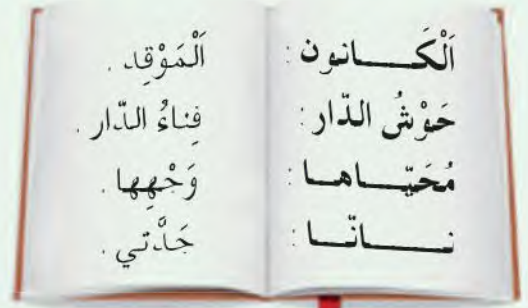 اَلْكَـــانون : اَلْمَوْقِد .
حَوْشُ الدّار : فِناءُ الدّار .
مُحَيّـــاهـا : وَجْهِها .
نـــانّـــا : جَدَّتي .